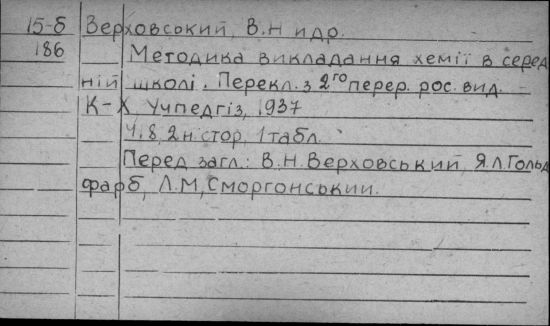 15-б Верховський, В.Н идр.
186 Методика викладання хемії в серед
ній школі. Перекл. з 2го перер. рос. вид. –
К-Х Учпедгіз, 1937
2н. стор, 1 табл.
Перед загл.: В.Н.Верховський, Я.Л.Гольд
фарб, Л.М,Сморгонський.